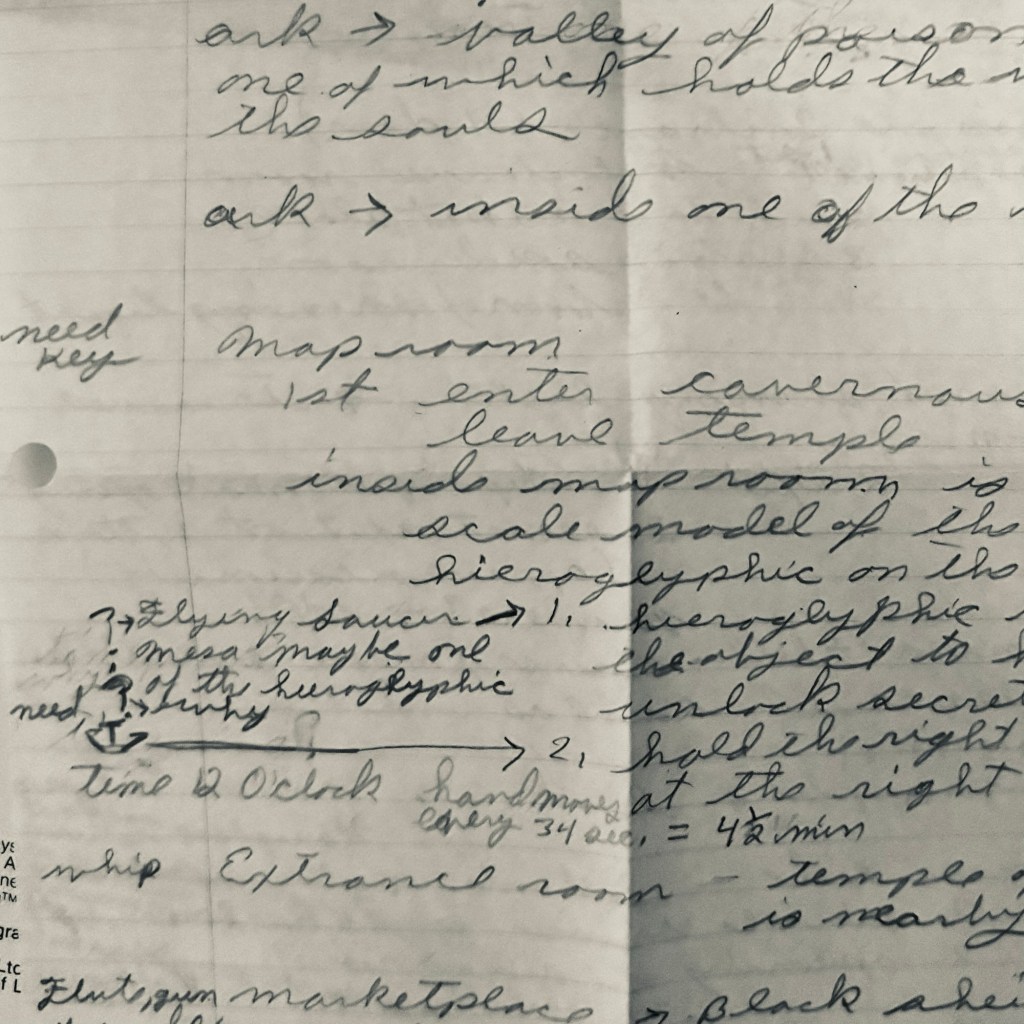 ark → valley of poison
one of which holds the
the souls
ark → inside one of the
need
key
Map room
1st enter cavernous
leave temple
inside map room is
scale model of the
hieroglyphic on the
?→ Flying saucer → 1. hieroglyphic
mesa maybe one the object to
of the hieroglyphic
need why unlock secret
→ 2. hold the right
time 12 O'clock hand moves at the right
every 34 sec. = 4½ min
whip Extrance room - temple of
is nearby
Flute, gun marketplace → Black shei